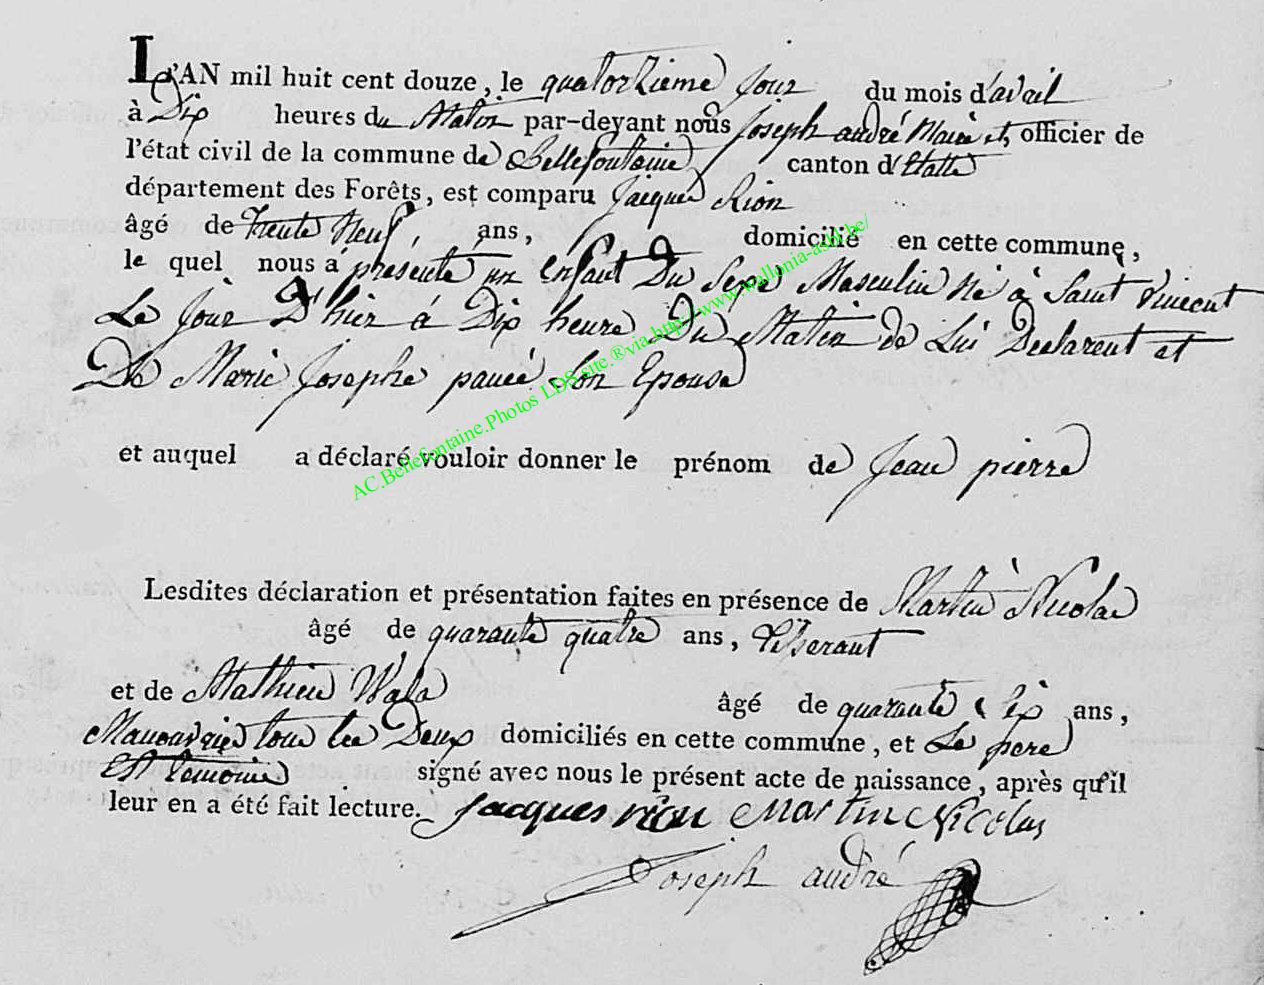 L'AN mil huit cent douze, le quatorzieme jour du mois d'avril
à Dix heures du Matin par-devant nous Joseph andré Maire et officier de
l'état civil de la commune de Bellefontaine canton d'Etalle
département des Forêts, est comparu Jacques Rion
âgé de trente Neuf, ans, domicilié en cette commune,
le quel nous a presenté un enfant Du Sexe Masculin Né à Saint Vincent
Le jour D'hier à Dix heure Du Matin de Lui Declarent et
De Marie Josephe Son Epouse
et auquel a déclaré vouloir donner le prénom de Jean pierre
Lesdites déclaration et présentation faites en présence de Martin Nicolas
âgé de quarante quatre ans, tisserant
et de Mathieu âgé de quarante Six ans,
Manouvrier tous les Deux domiciliés en cette commune, et Le pere
signé avec nous le présent acte de naissance, après qu'il
leur en a été fait lecture. Jacques rion Martin Nicolas
Joseph andré
AC.Bellefontaine.Photos LDS site ®via http://www.wallonia-asbl.be/